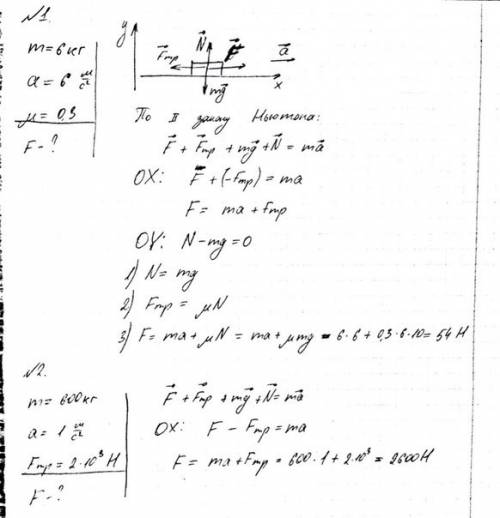 №1.
m=6 кг
a=6 м/с²
μ=0,3
F-?
y
F⃗тр N⃗ F⃗ a⃗
mg⃗ x
По II закону Ньютона:
F⃗ + F⃗тр + mg⃗ + N⃗ = ma⃗
OX: F + (-Fтр) = ma
F = ma + Fтр
OY: N - mg = 0
1) N = mg
2) Fтр = μN
3) F = ma + μN = ma + μmg = 6·6 + 0,3·6·10 = 54 Н
№2.
m=600кг
a=1 м/с²
Fтр = 2·10³ Н
F-?
F⃗ + F⃗тр + mg⃗ + N⃗ = ma⃗
OX: F - Fтр = ma
F = ma + Fтр = 600·1 + 2·10³ = 2600Н